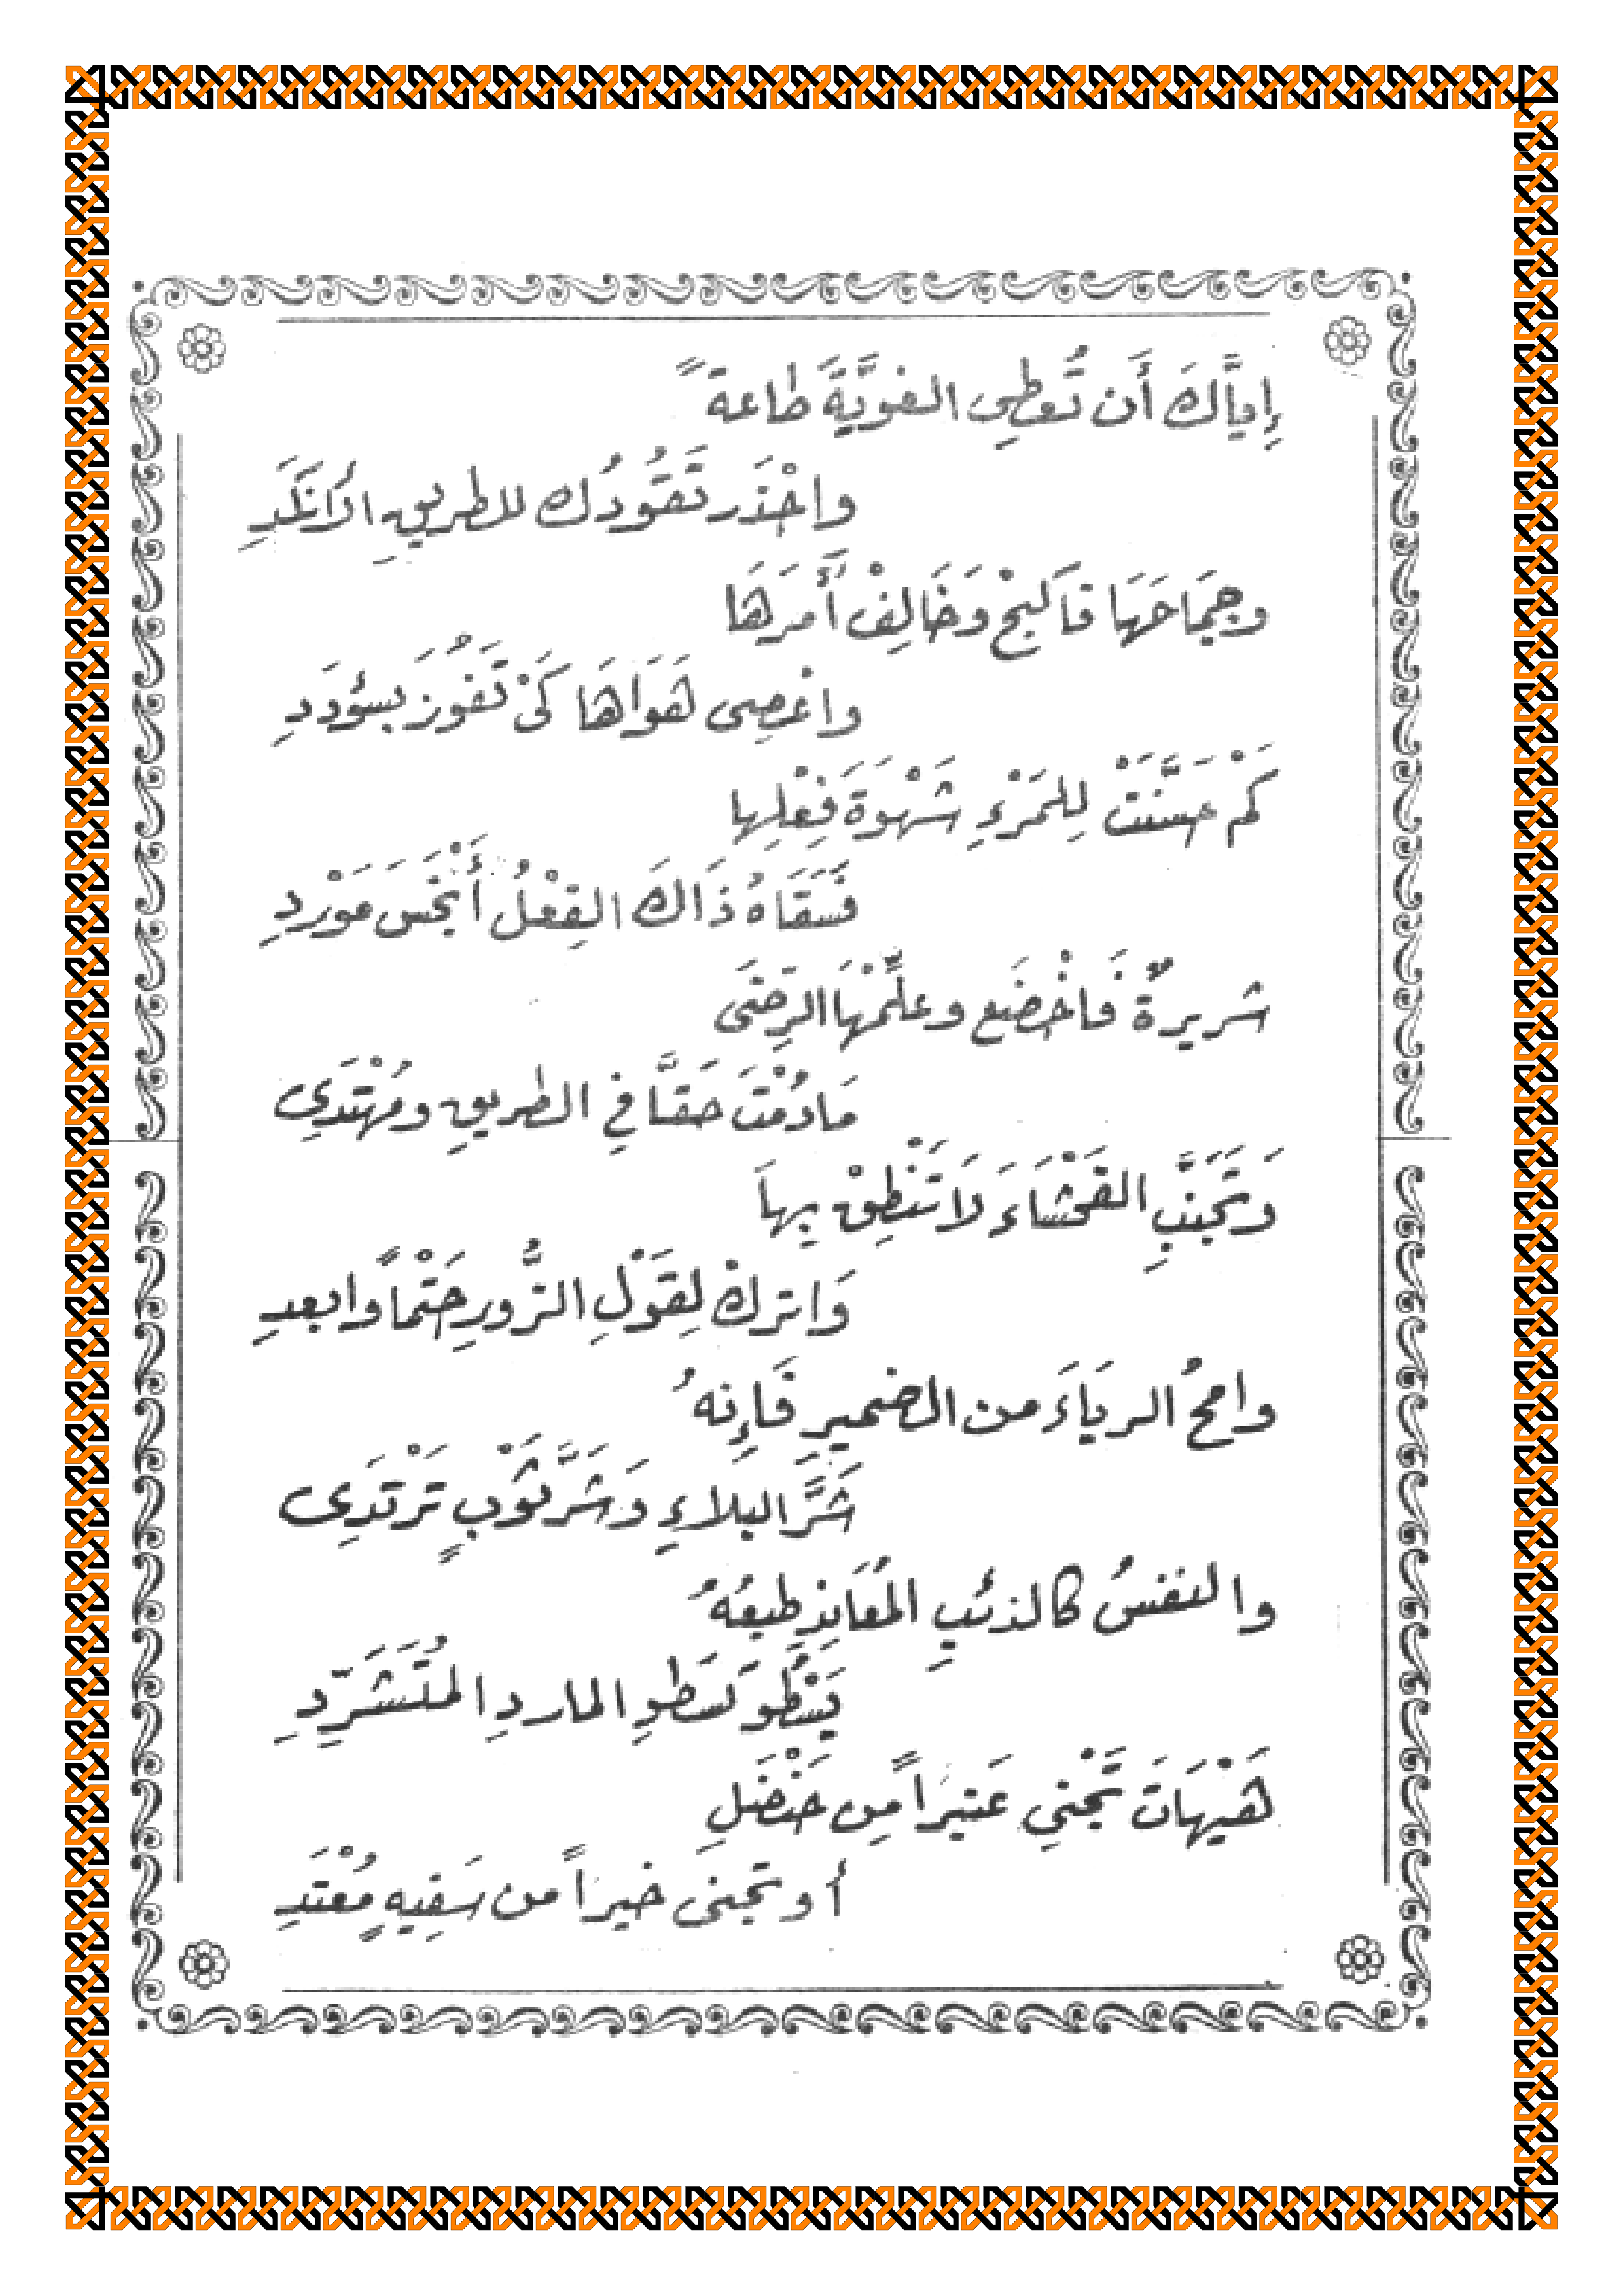 إِياَّكَ أَن تُعطِى الغويَّةً طاعةً
واحْذَر تَقُودُك للطريقِ الأنكَدِ
وجِمَاحَهَا فاَكبحْ وَخَالِفْ أَمرَهَا
واعْصِى هَوَاهَا كَىْ تَفُوزَ بسؤددِ
كَمْ حَسَّنَتْ لِلمَرْءِ شَهْوَةَ فِعْلِها
فَسَقَاهُ ذَاكَ الفِعْلُ أَنْجَسَ مَوْردِ
شريرةٌ فاخْضَع وعلِّمْهَا
مَادُمْتَ حَقاًّ فِي الطريقِ ومُهْتَدِي
وَتَجَنَّبِ الفَحْشَاءَ لاَ تَنْطِقْ بِهاَ
وَاترك لِقَوْلِ الزُّورِ حَتْماً وابعدِ
وامحُ الريَاءَ من الضميرِ فَإِنهُ
شَرَّ البلاءِ وَشَرَّ ثَوْبٍ تَرْتَدِى
والنفسُ كالذئبِ المُعَانِدِ طبعُهُ
يَسْطُو كَسَطوِ الماردِ المُتَشَرِّدِ
هَيْهَاتَ تَجْنِي عَنبراً مِن حَنْضَلِ
أو تجنى خيراً من سَفِيهٍ مُعْتَدِ